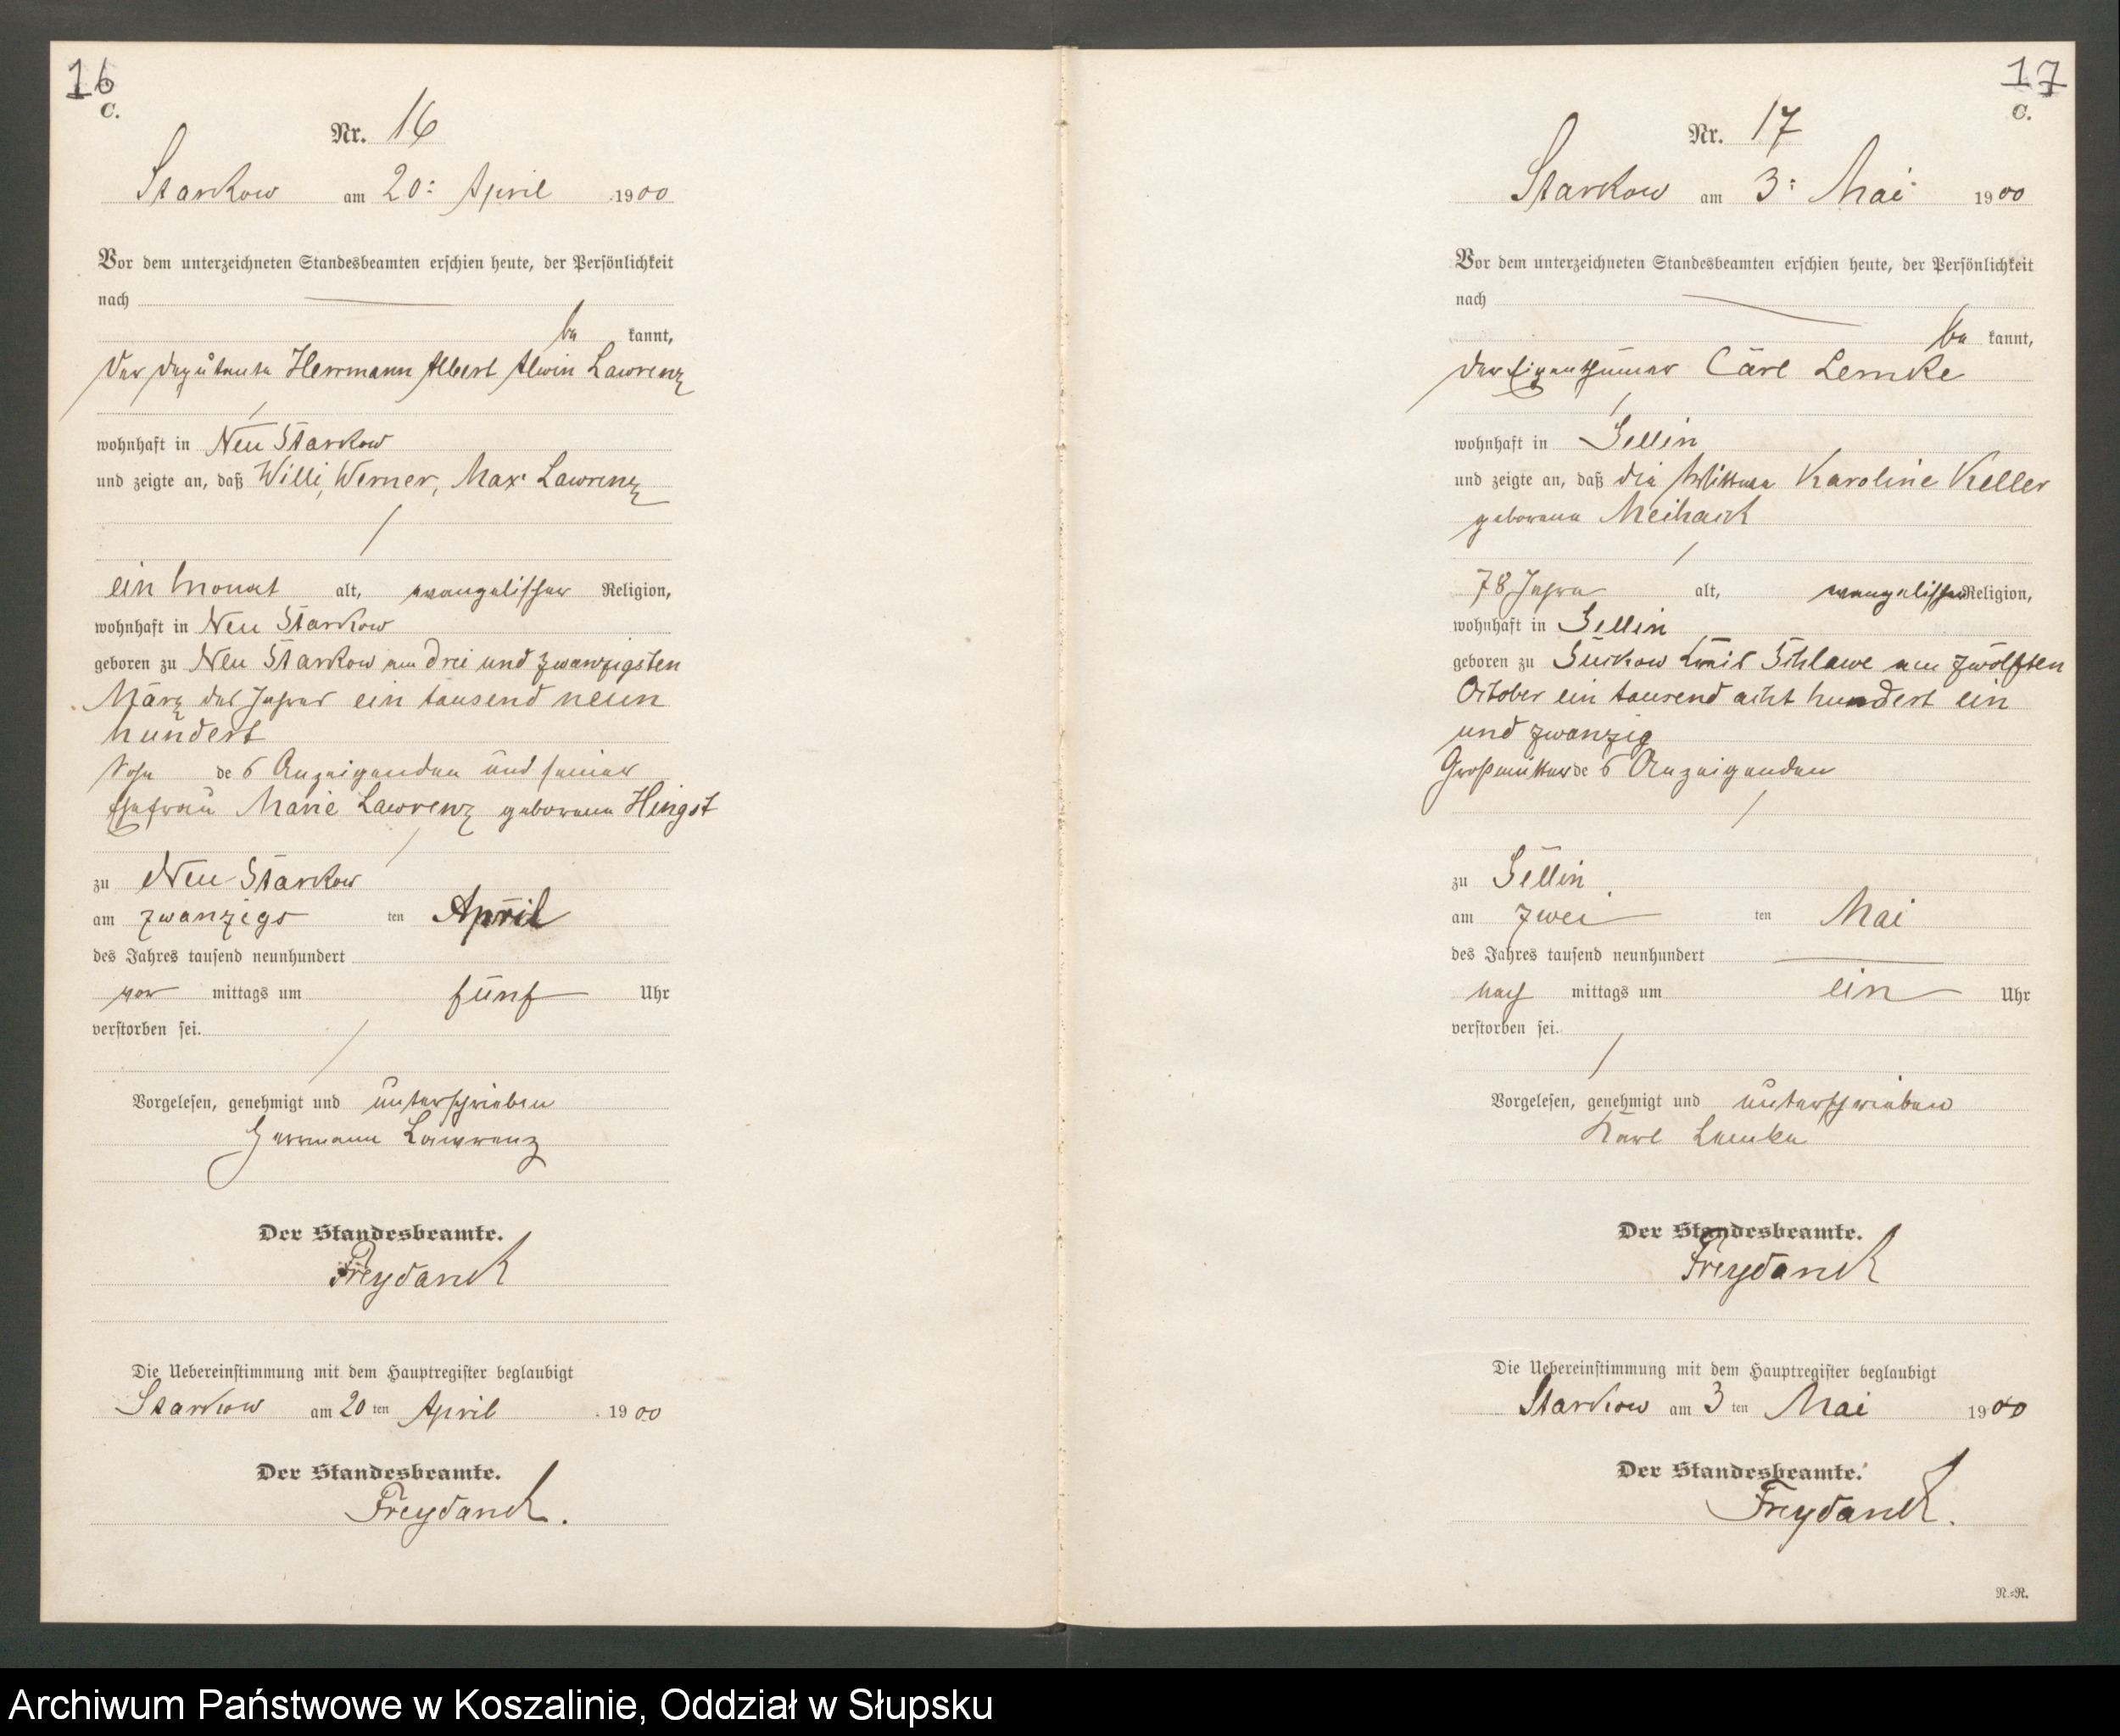 16
C.
Nr. 16
Starkow am 20: April 1900
Vor dem unterzeichneten Standesbeamten erschien heute, der Persönlichkeit
nach
be kannt,
Der Deputante Herrmann Albert Alwin Lawrenz
wohnhaft in Neu Starkow
und zeigte an, daß Willi, Werner, Max Lawrenz
ein Monat alt, evangelischer Religion,
wohnhaft in Neu Starkow
geboren zu Neu Starkow am drei und zwanzigsten
März des Jahres ein tausend neun
hundert
Sohn des Anzeigenden und seiner
Ehefrau Marie Lawrenz geborene Hingst
zu Neu Starkow
am zwanzigs ten April
des Jahres tausend neunhundert
vor mittags um fünf Uhr
verstorben sei.
Vorgelesen, genehmigt und unterschrieben
Herrmann Lawrenz
Der Standesbeamte.
Freydanck
Die Uebereinstimmung mit dem Hauptregister beglaubigt
Starkow am 20 ten April 1900
Der Standesbeamte.
Freydanck.
17
C.
Nr. 17
Starkow am 3: Mai 1900
Vor dem unterzeichneten Standesbeamten erschien heute, der Persönlichkeit
nach
be kannt,
Der Eigenthümer Carl Lemke
wohnhaft in Sellin
und zeigte an, daß die Wittwe Karoline Keller
geborene
78 Jahre alt, evangelischer Religion,
wohnhaft in Sellin
geboren zu Suckow Kreis Schlawe am zwölften
October ein tausend acht hundert ein
und zwanzig
Großmutter des Anzeigenden
zu Sellin
am zwei ten Mai
des Jahres tausend neunhundert
nach mittags um ein Uhr
verstorben sei.
Vorgelesen, genehmigt und unterschrieben
Karl Lemke
Der Standesbeamte.
Freydanck
Die Uebereinstimmung mit dem Hauptregister beglaubigt
Starkow am 3 ten Mai 1900
Der Standesbeamte.
Freydanck.
N.=R.
Archiwum Państwowe w Koszalinie, Oddział w Słupsku